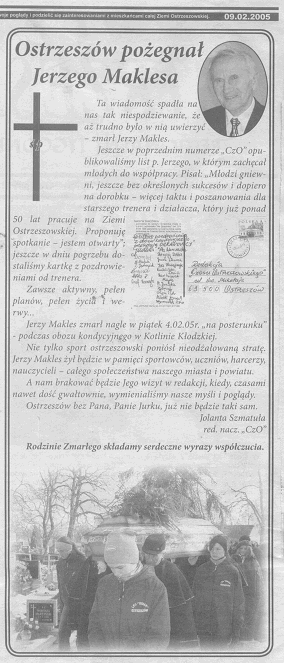 poglądy i podzielić się zainteresowaniami z mieszkańcami całej Ziemi Ostrzeszowskiej.
09.02.2005
Ostrzeszów pożegnał
Jerzego Maklesa
Ta wiadomość spadła na
nas tak niespodziewanie, że
aż trudno było w nią uwierzyć
– zmarł Jerzy Makles.
Jeszcze w poprzednim numerze „CzO” opu-
blikowaliśmy list p. Jerzego, w którym zachęcał
młodych do współpracy. Pisał: „Młodzi gniew-
ni, jeszcze bez określonych sukcesów i dopiero
na dorobku – więcej taktu i poszanowania dla
starszego trenera i działacza, który już ponad
50 lat pracuje na Ziemi
Ostrzeszowskiej. Proponuję
spotkanie – jestem otwarty”;
jeszcze w dniu pogrzebu do-
staliśmy kartkę z pozdrowie-
niami od trenera.
Zawsze aktywny, pełen
planów, pełen życia i we-
rwy...
Redakcja
Ostrzeszów
Jerzy Makles zmarł nagle w piątek 4.02.05r. „na posterunku”
- podczas obozu kondycyjnego w Kotlinie Kłodzkiej.
Nie tylko sport ostrzeszowski poniósł nieodżałowaną stratę.
Jerzy Makles żył będzie w pamięci sportowców, uczniów, harcerzy,
nauczycieli – całego społeczeństwa naszego miasta i powiatu.
A nam brakować będzie Jego wizyt w redakcji, kiedy, czasami
nawet dość gwałtownie, wymienialiśmy nasze myśli i poglądy.
Ostrzeszów bez Pana, Panie Jurku, już nie będzie taki sam.
Jolanta Szmatuła
red. nacz. „CzO”
Rodzinie Zmarłego składamy serdeczne wyrazy współczucia.